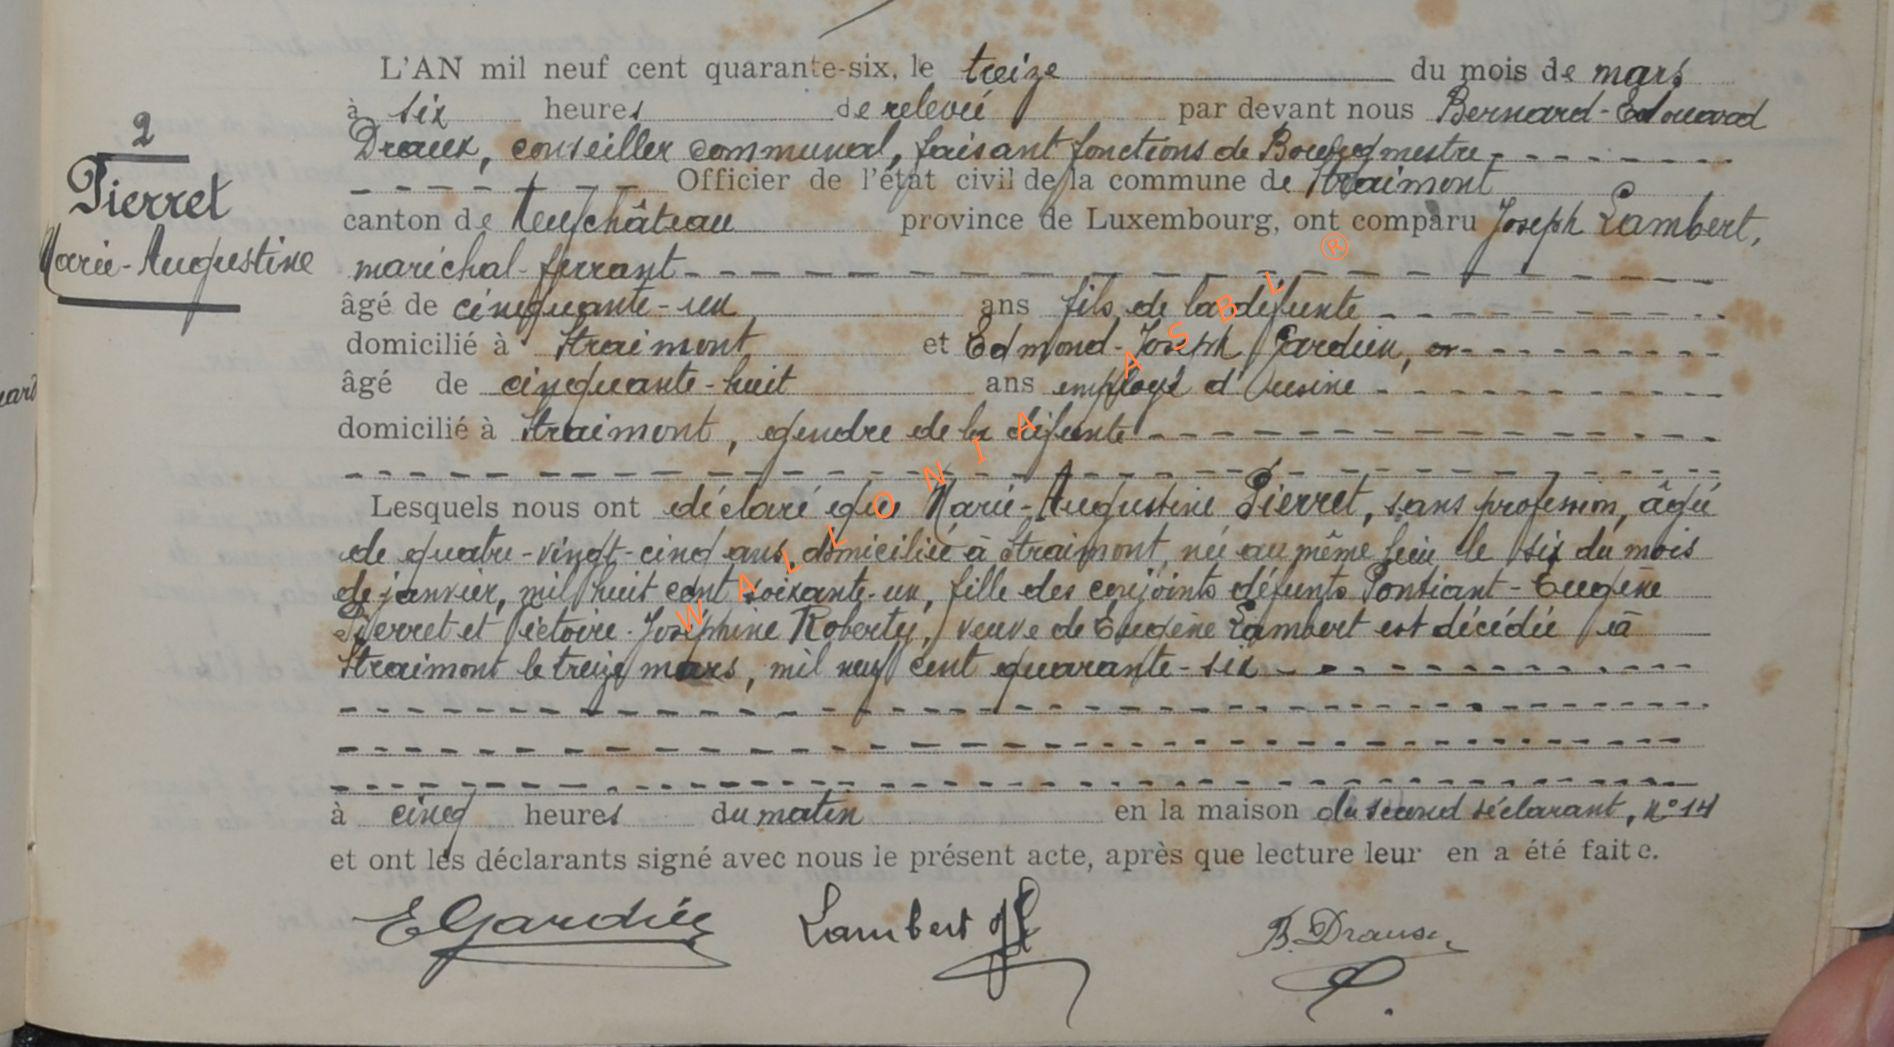 2
Pierret
Marie-Augustine
L'AN mil neuf cent quarante-six, le treize du mois de mars
à six heures de relevée par devant nous Bernard-Edouard
conseiller communal, faisant fonctions de Bourgmestre
Officier de l'état civil de la commune de Straimont
canton de Neufchâteau province de Luxembourg, ont comparu Joseph Lambert,
maréchal-ferrant
âgé de cinquante-un ans fils de la défunte
domicilié à Straimont et Edmond-Joseph Gardien,
âgé de cinquante-huit ans employé d'usine
domicilié à Straimont, gendre de la défunte
Lesquels nous ont déclaré que Marie-Augustine Pierret, sans profession, âgée
de quatre-vingt-cinq ans, domiciliée à Straimont, née au même lieu le six du mois
de janvier, mil huit cent soixante-un, fille des conjoints défunts Pontiant-Eugène
Pierret et Victoire-Joséphine Roberty, veuve de Eugène Lambert est décédée à
Straimont le treize mars, mil neuf cent quarante-six
à cinq heures du matin en la maison du second déclarant, n° 14
et ont les déclarants signé avec nous le présent acte, après que lecture leur en a été faite.
E Gardien Lambert
WALLONIA ASBL ®